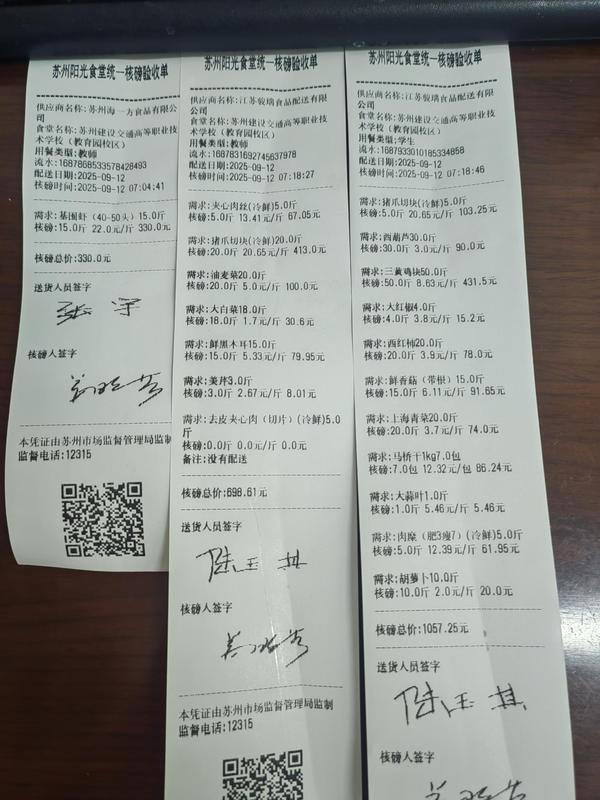 苏州阳光食堂统一核磅验收单
供应商名称:苏州海一方食品有限公
司
食堂名称:苏州建设交通高等职业技
术学校（教育园校区）
用餐类型:教师
流水:1687868533578428493
配送日期:2025-09-12
核磅时间:2025-09-12 07:04:41
需求:基围虾（40-50头）15.0斤
核磅:15.0斤 22.0元/斤 330.0元
核磅总价:330.0元
送货人员签字
核磅人签字
本凭证由苏州市场监督管理局监制
监督电话:12315
苏州阳光食堂统一核磅验收单
供应商名称:江苏骏瑞食品配送有限
公司
食堂名称:苏州建设交通高等职业技
术学校（教育园校区）
用餐类型:教师
流水:1687831692745637978
配送日期:2025-09-12
核磅时间:2025-09-12 07:18:27
需求:夹心肉丝(冷鲜)5.0斤
核磅:5.0斤 13.41元/斤 67.05元
需求:猪爪切块(冷鲜)20.0斤
核磅:20.0斤 20.65元/斤 413.0元
需求:油麦菜20.0斤
核磅:20.0斤 5.0元/斤 100.0元
需求:大白菜18.0斤
核磅:18.0斤 1.7元/斤 30.6元
需求:鲜黑木耳15.0斤
核磅:15.0斤 5.33元/斤 79.95元
需求:美芹3.0斤
核磅:3.0斤 2.67元/斤 8.01元
需求:去皮夹心肉（切片）(冷鲜)5.0
斤
核磅:0.0斤 0.0元/斤 0.0元
备注:没有配送
核磅总价:698.61元
送货人员签字
陆玉其
核磅人签字
本凭证由苏州市场监督管理局监制
监督电话:12315
苏州阳光食堂统一核磅验收单
供应商名称:江苏骏瑞食品配送有限
公司
食堂名称:苏州建设交通高等职业技
术学校（教育园校区）
用餐类型:学生
流水:1687933010185334858
配送日期:2025-09-12
核磅时间:2025-09-12 07:18:46
需求:猪爪切块(冷鲜)5.0斤
核磅:5.0斤 20.65元/斤 103.25元
需求:西葫芦30.0斤
核磅:30.0斤 3.0元/斤 90.0元
需求:三黄鸡块50.0斤
核磅:50.0斤 8.63元/斤 431.5元
需求:大红椒4.0斤
核磅:4.0斤 3.8元/斤 15.2元
需求:西红柿20.0斤
核磅:20.0斤 3.9元/斤 78.0元
需求:鲜香菇（带根）15.0斤
核磅:15.0斤 6.11元/斤 91.65元
需求:上海青菜20.0斤
核磅:20.0斤 3.7元/斤 74.0元
需求:马桥干1kg7.0包
核磅:7.0包 12.32元/包 86.24元
需求:大蒜叶1.0斤
核磅:1.0斤 5.46元/斤 5.46元
需求:肉糜（肥3瘦7）(冷鲜)5.0斤
核磅:5.0斤 12.39元/斤 61.95元
需求:胡萝卜10.0斤
核磅:10.0斤 2.0元/斤 20.0元
核磅总价:1057.25元
送货人员签字
陆玉其
核磅人签字